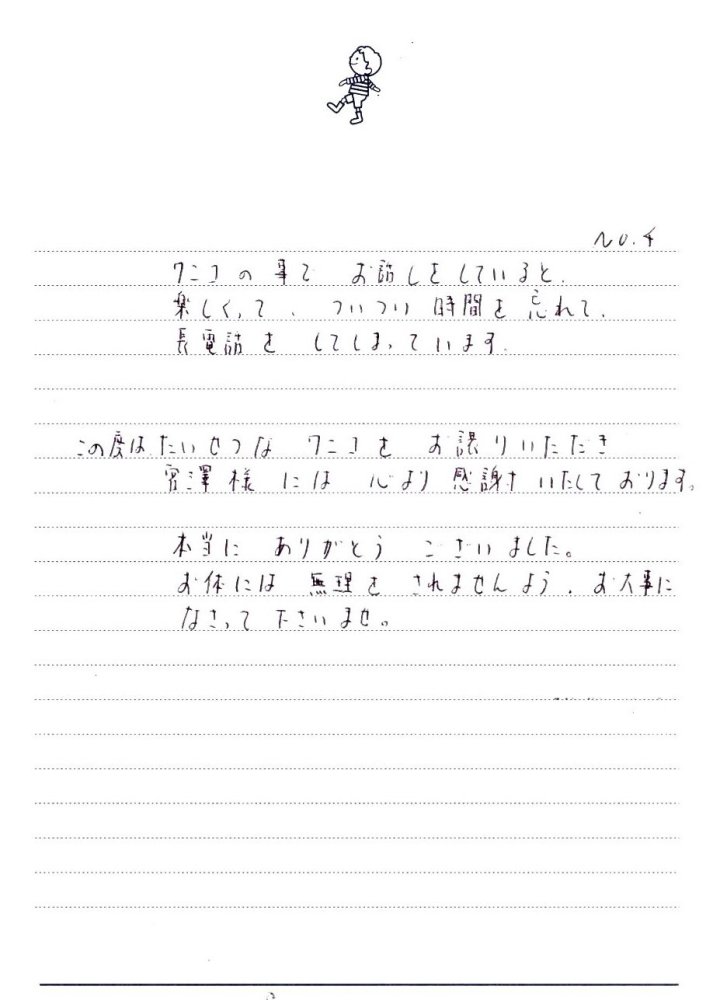 No.4
ワニコの事で お話しをしていると、
楽しくって、ついつい 時間を忘れて、
長電話を してしまっています。
この度は たいせつな ワニコを お譲りいただき
宮澤様 には 心より 感謝 いたしております。
本当に ありがとう ございました。
お体には 無理を されませんよう、お大事に
なさって 下さいませ。